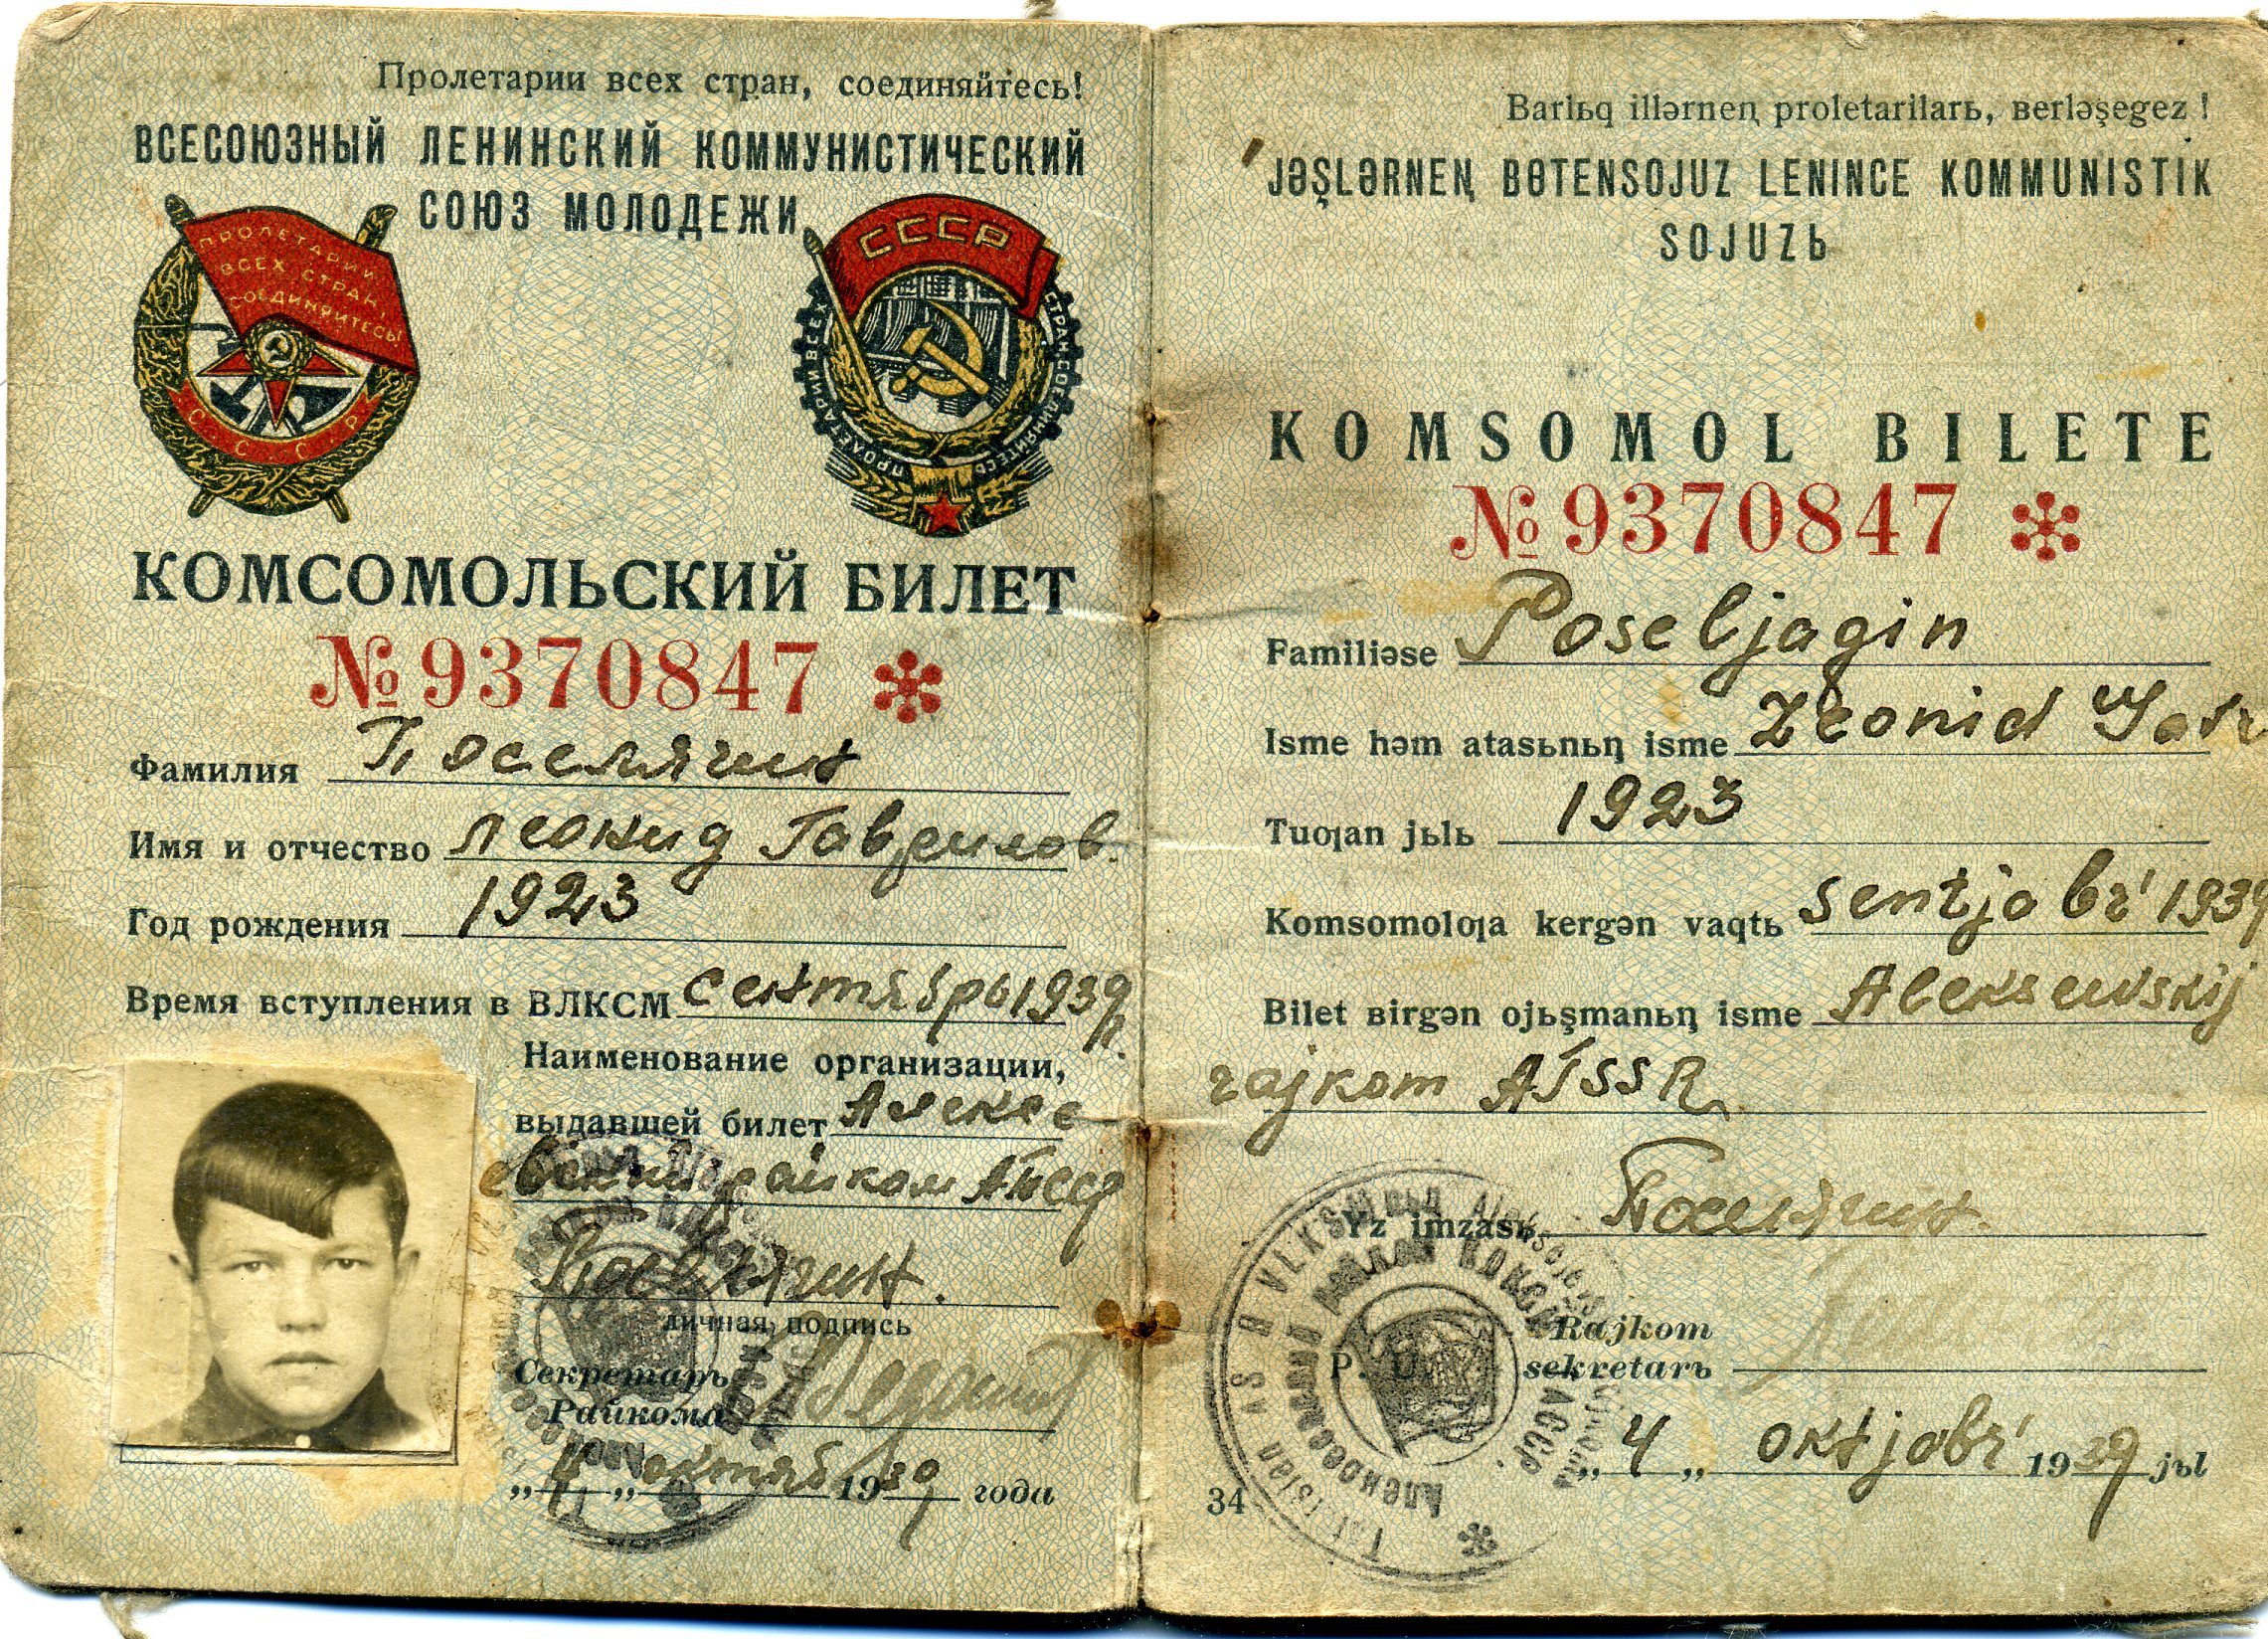 Пролетарии всех стран, соединяйтесь!
ВСЕСОЮЗНЫЙ ЛЕНИНСКИЙ КОММУНИСТИЧЕСКИЙ
СОЮЗ МОЛОДЕЖИ
ПРОЛЕТАРИИ
ВСЕХ СТРАН,
СОЕДИНЯЙТЕСЬ!
С.С.С.Р
СССР
ПРОЛЕТАРИИ ВСЕХ СТРАН, СОЕДИНЯЙТЕСЬ
КОМСОМОЛЬСКИЙ БИЛЕТ
№ 9370847
Фамилия Поселягин
Имя и отчество Леонид Гаврилов.
Год рождения 1923
Время вступления в ВЛКСМ сентябрь 1939 г.
Наименование организации,
выдавшей билет Алексе
евский райком АТССР
Поселягин.
личная подпись
Секретарь
Райкома
„4„ октяб 1939 года
Barlьq illərneꞑ proletarilarь, ʙerləşegez!
JƏŞLƏRNEꞐ BƟTENSOJUZ LENINCE KOMMUNISTIK
SOJUZЬ
KOMSOMOL BILETE
№ 9370847
Familiəse Poseljagin
Isme həm atasьnьꞑ isme Leonid
Tuƣan jьlь 1923
Komsomolƣa kergən vaqtь sentjabr' 1939
Bilet ʙirgən ojьşmanьꞑ isme Alekseevskij
rajkom ATSSR
Yz imzasь Поселягин.
P. U.
Rajkom
sekretarь
„4„ oktjabr' 1939 jьl
34